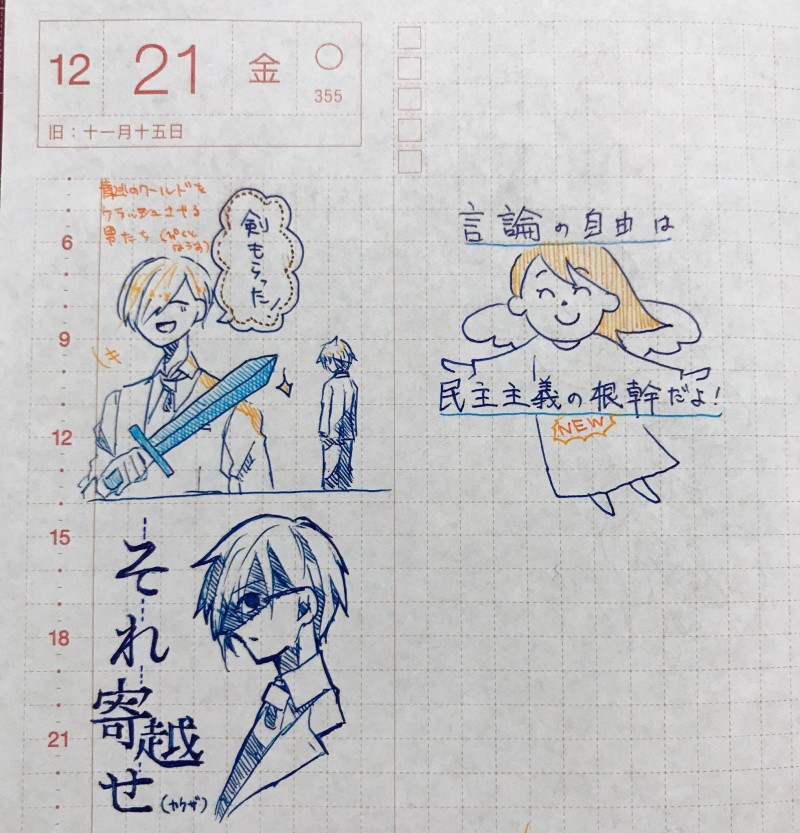 12 21 金
355
旧：十一月十五日
のワールドを
クラッシュさせる
男たち
剣もらった!
言論の自由は
民主主義の根幹だよ!
NEW
それ寄越せ
(ヤクザ)
6
9
12
15
18
21